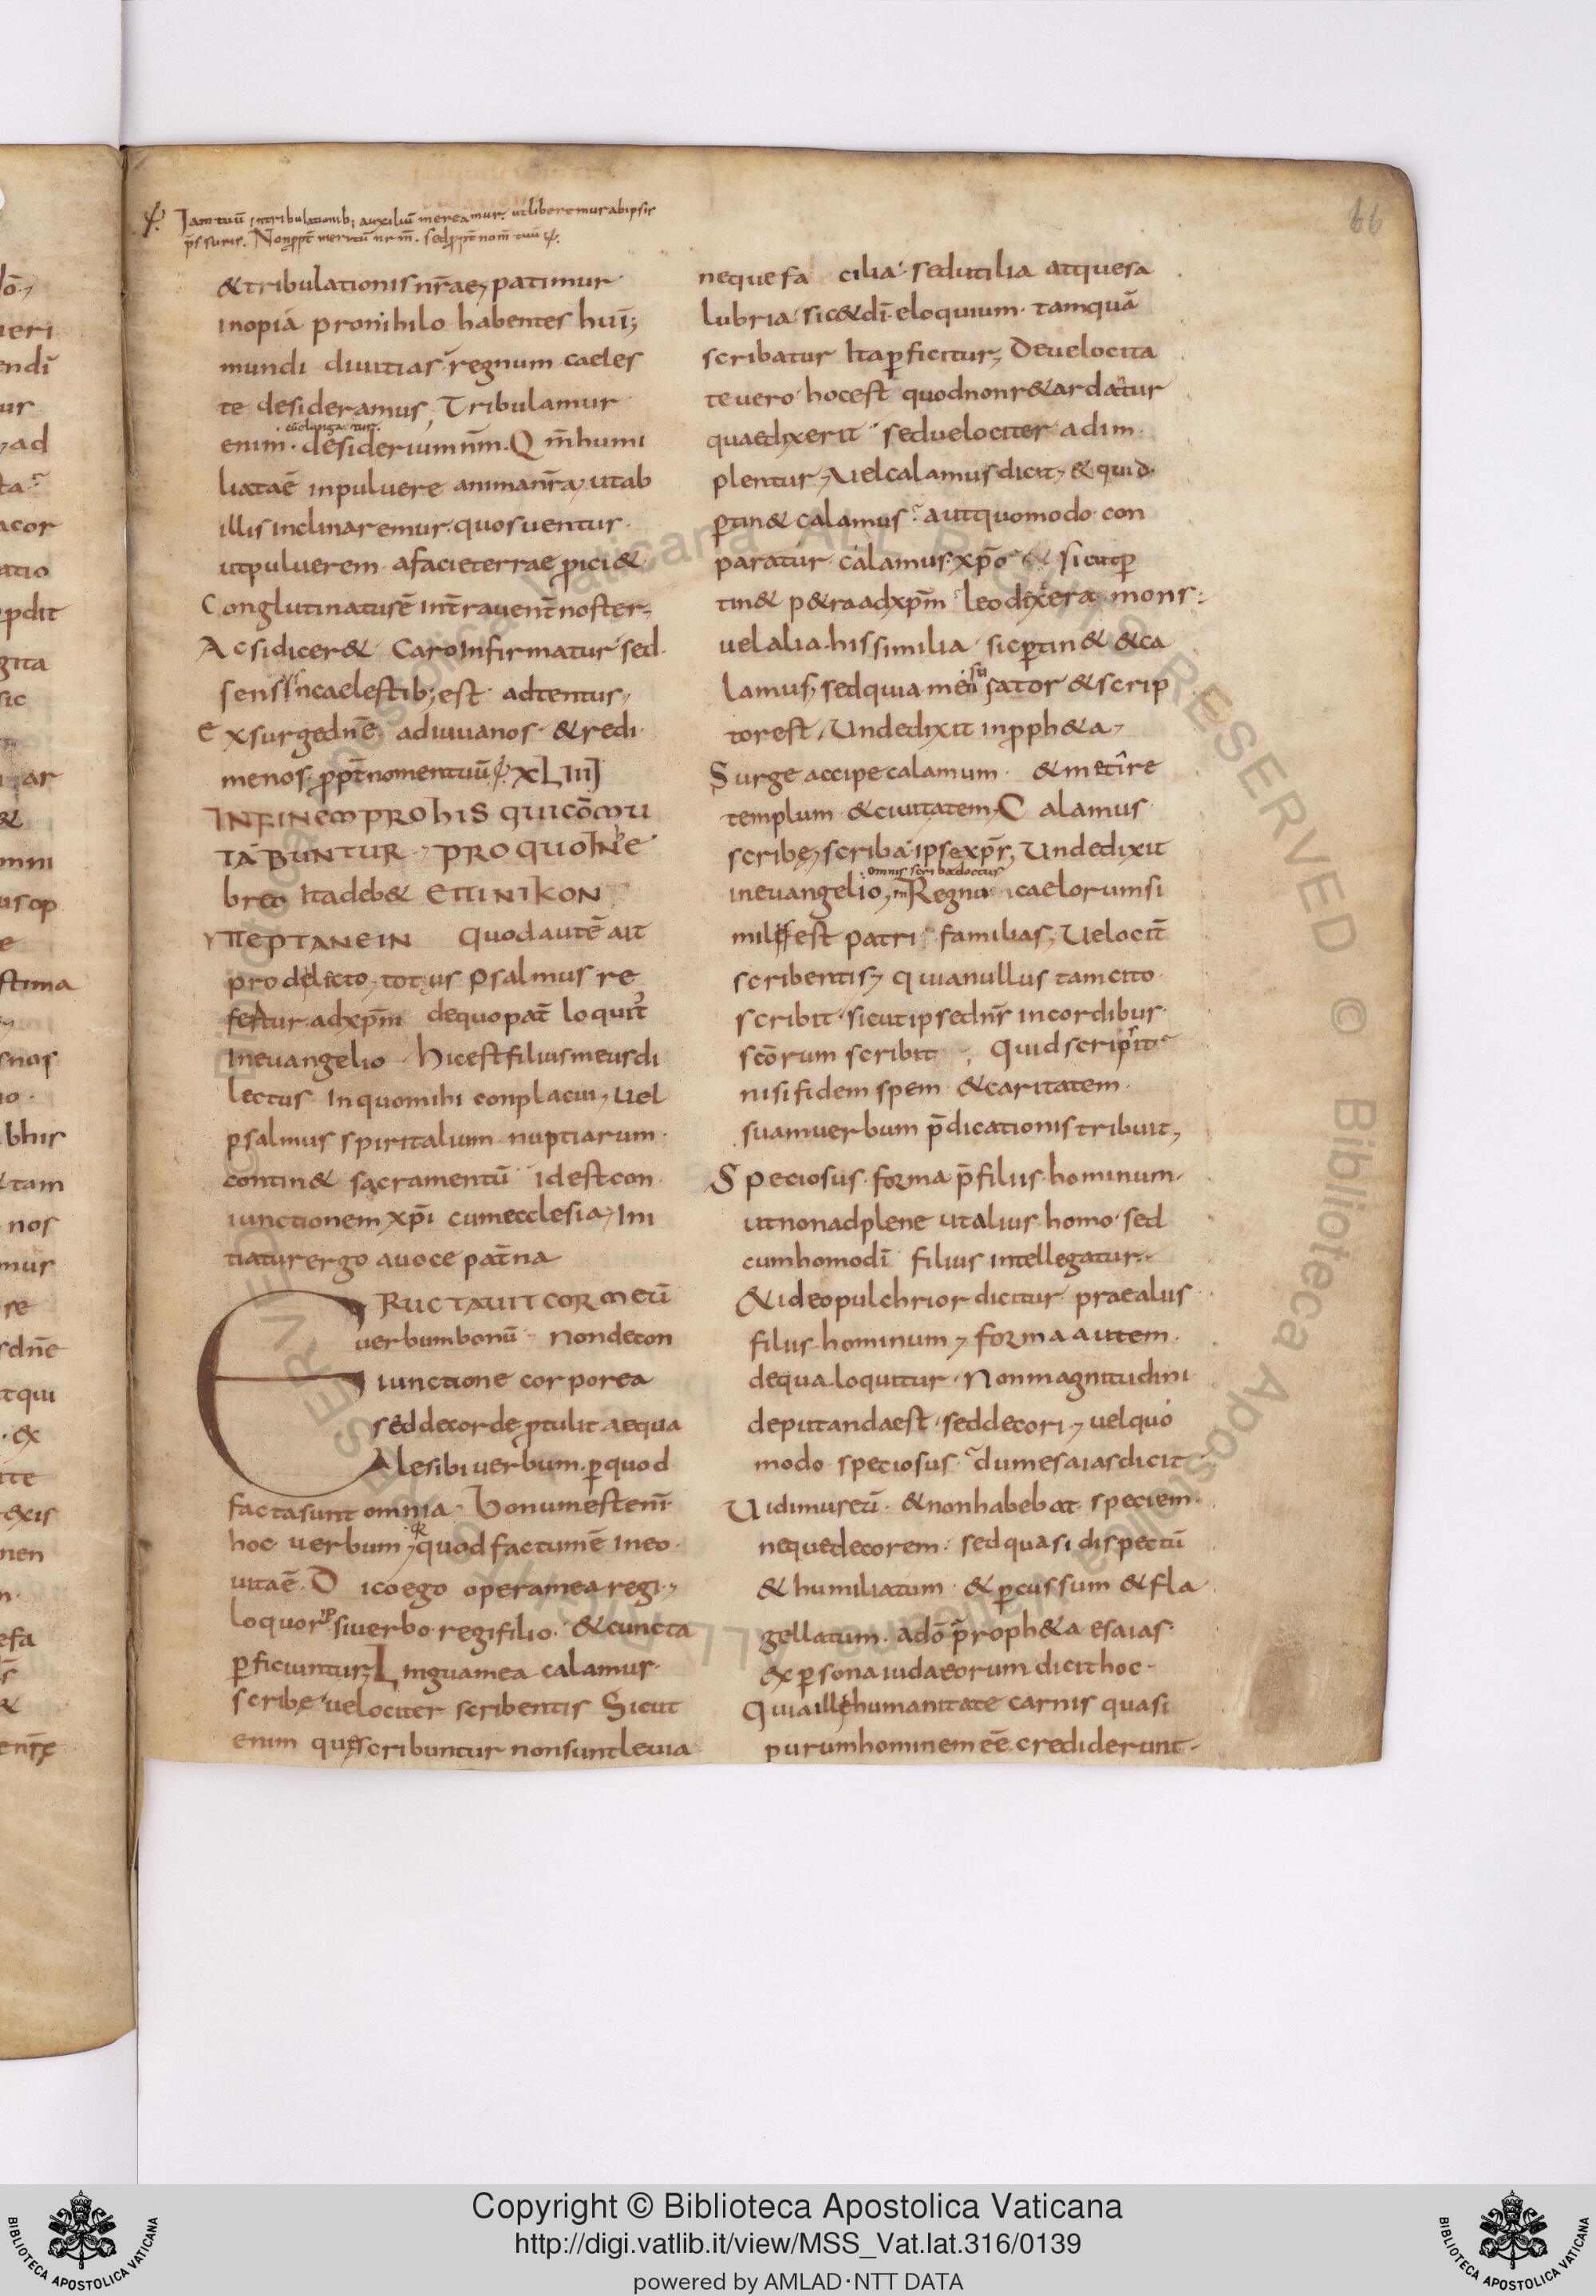 66
Iam tuū intribulationib; auxiliū mereamur. utliberemur abipsis
p̄ssuris. Nonꝓpt̄ meritū nr̄m̄. sedꝓpt̄ nom̄ tuū
&tribulationis nr̄ae, patimur
inopiā pronihilo habentes hui;
mundi diuitias regnum caeles
te desideramus, Tribulamur
euelunga tur
enim desiderium nr̄m. Qm̄ humi
liataē inpuluere animanr̄a, utab
illis inclinaremur. quos uentur
utpuluerem afacieterrae ꝓici&
Conglutinatusē int̄rauent̄ noster,
Acsidicer& Caro Infirmatur sed
sensus incaelestib; est adtentus,
Exsurgedn̄e adiuuanos & redi
menos ꝓpt̄ nomentuū XLIII
INFINEM PROHIS QUICOMMU
TABUNTUR, PROQUO INHE
breo Itadeb& ΕΠΙΝΙΚΟΝ
ΥΠΕΡΤΑΝΕΙΝ quodautē ait
prodelicto, totus psalmus re
fertur adxp̄m dequopat̄ loquit̄
Ineuangelio Hicestfilius meusdi
lectus Inquomihi conplacui, uel
psalmus spiritalium nuptiarum
contin& sacramentū idestcon
iunctionem xp̄i cumecclesia, Ini
tiaturergo auoce pat̄na
ERUCTAUIT COR MEŪ
uerbumbonū, nondecon
iunctione corporea
seddecorde ꝓtulit aequa
Alesibi uerbum. ꝑquod
factasunt omnia. Bonumestenī
hoc uerbum, quod factumē ineo
uitaē. Dico ego operamea regi,
loquor ipsi uerbo regifilio. &cuncta
ꝑficiuntur, Linguamea calamus
scribę uelociter scribentis Sicut
enim quęscribuntur nonsuntleuia
neque fa cilia sedutilia atquesa
lubria sic&dī eloquium tamquā
scribatur Itaꝑficitur, Deuelocita
teuero hocest quodnonr&ardatur
quaedixerit seduelociter adim
plentur, Uelcalamusdicit, &quid
ꝑtin& calamus autquomodo con
paratur calamus xp̄o sicutꝑ
tin& p&raadxp̄m leo dixera mons
uelalia hissimilia sicꝑtin& &ca
lamus, sedquia mensu sator &scrip
torest, Undedixit inꝓph&a,
Surge accipecalamum &metire
templum &ciuitatem, Calamus
scribę, scriba ipsexp̄s, Undedixit
omnis scribadoctus
ineuangelio, in Regno caelorumsi
milisest patri familias, Uelocit̄
scribentis, quianullus tamcito
scribit sicutipsedn̄s incordibus
sc̄orum scribit, Quidscripsit
nisifidem spem &caritatem
suamuerbum p̄dicationistribuit,
Speciosus forma p̄filiis hominum
utnonadplene utalius homo sed
cumhomodī filius intellegatur
&ideopulchrior dicitur praealiis
filiis hominum, forma autem
dequa loquitur Nonmagnitudini
deputandaest seddecori, uelquo
modo speciosus dumesaiasdicit
Uidimuseū &nonhabebat speciem
nequedecorem sedquasi dispectū
&humiliatum &ꝑcussum &fla
gellatum. adō proph&a esaias
exꝑsonaiudaeorum dicithoc
Quiaillęhumanitate carnis quasi
purumhominem eē crediderunt
Copyright © Biblioteca Apostolica Vaticana
http://digi.vatlib.it/view/MSS_Vat.lat.316/0139
powered by AMLAD·NTT DATA
BIBLIOTECA APOSTOLICA VATICANA
BIBLIOTECA APOSTOLICA VATICANA